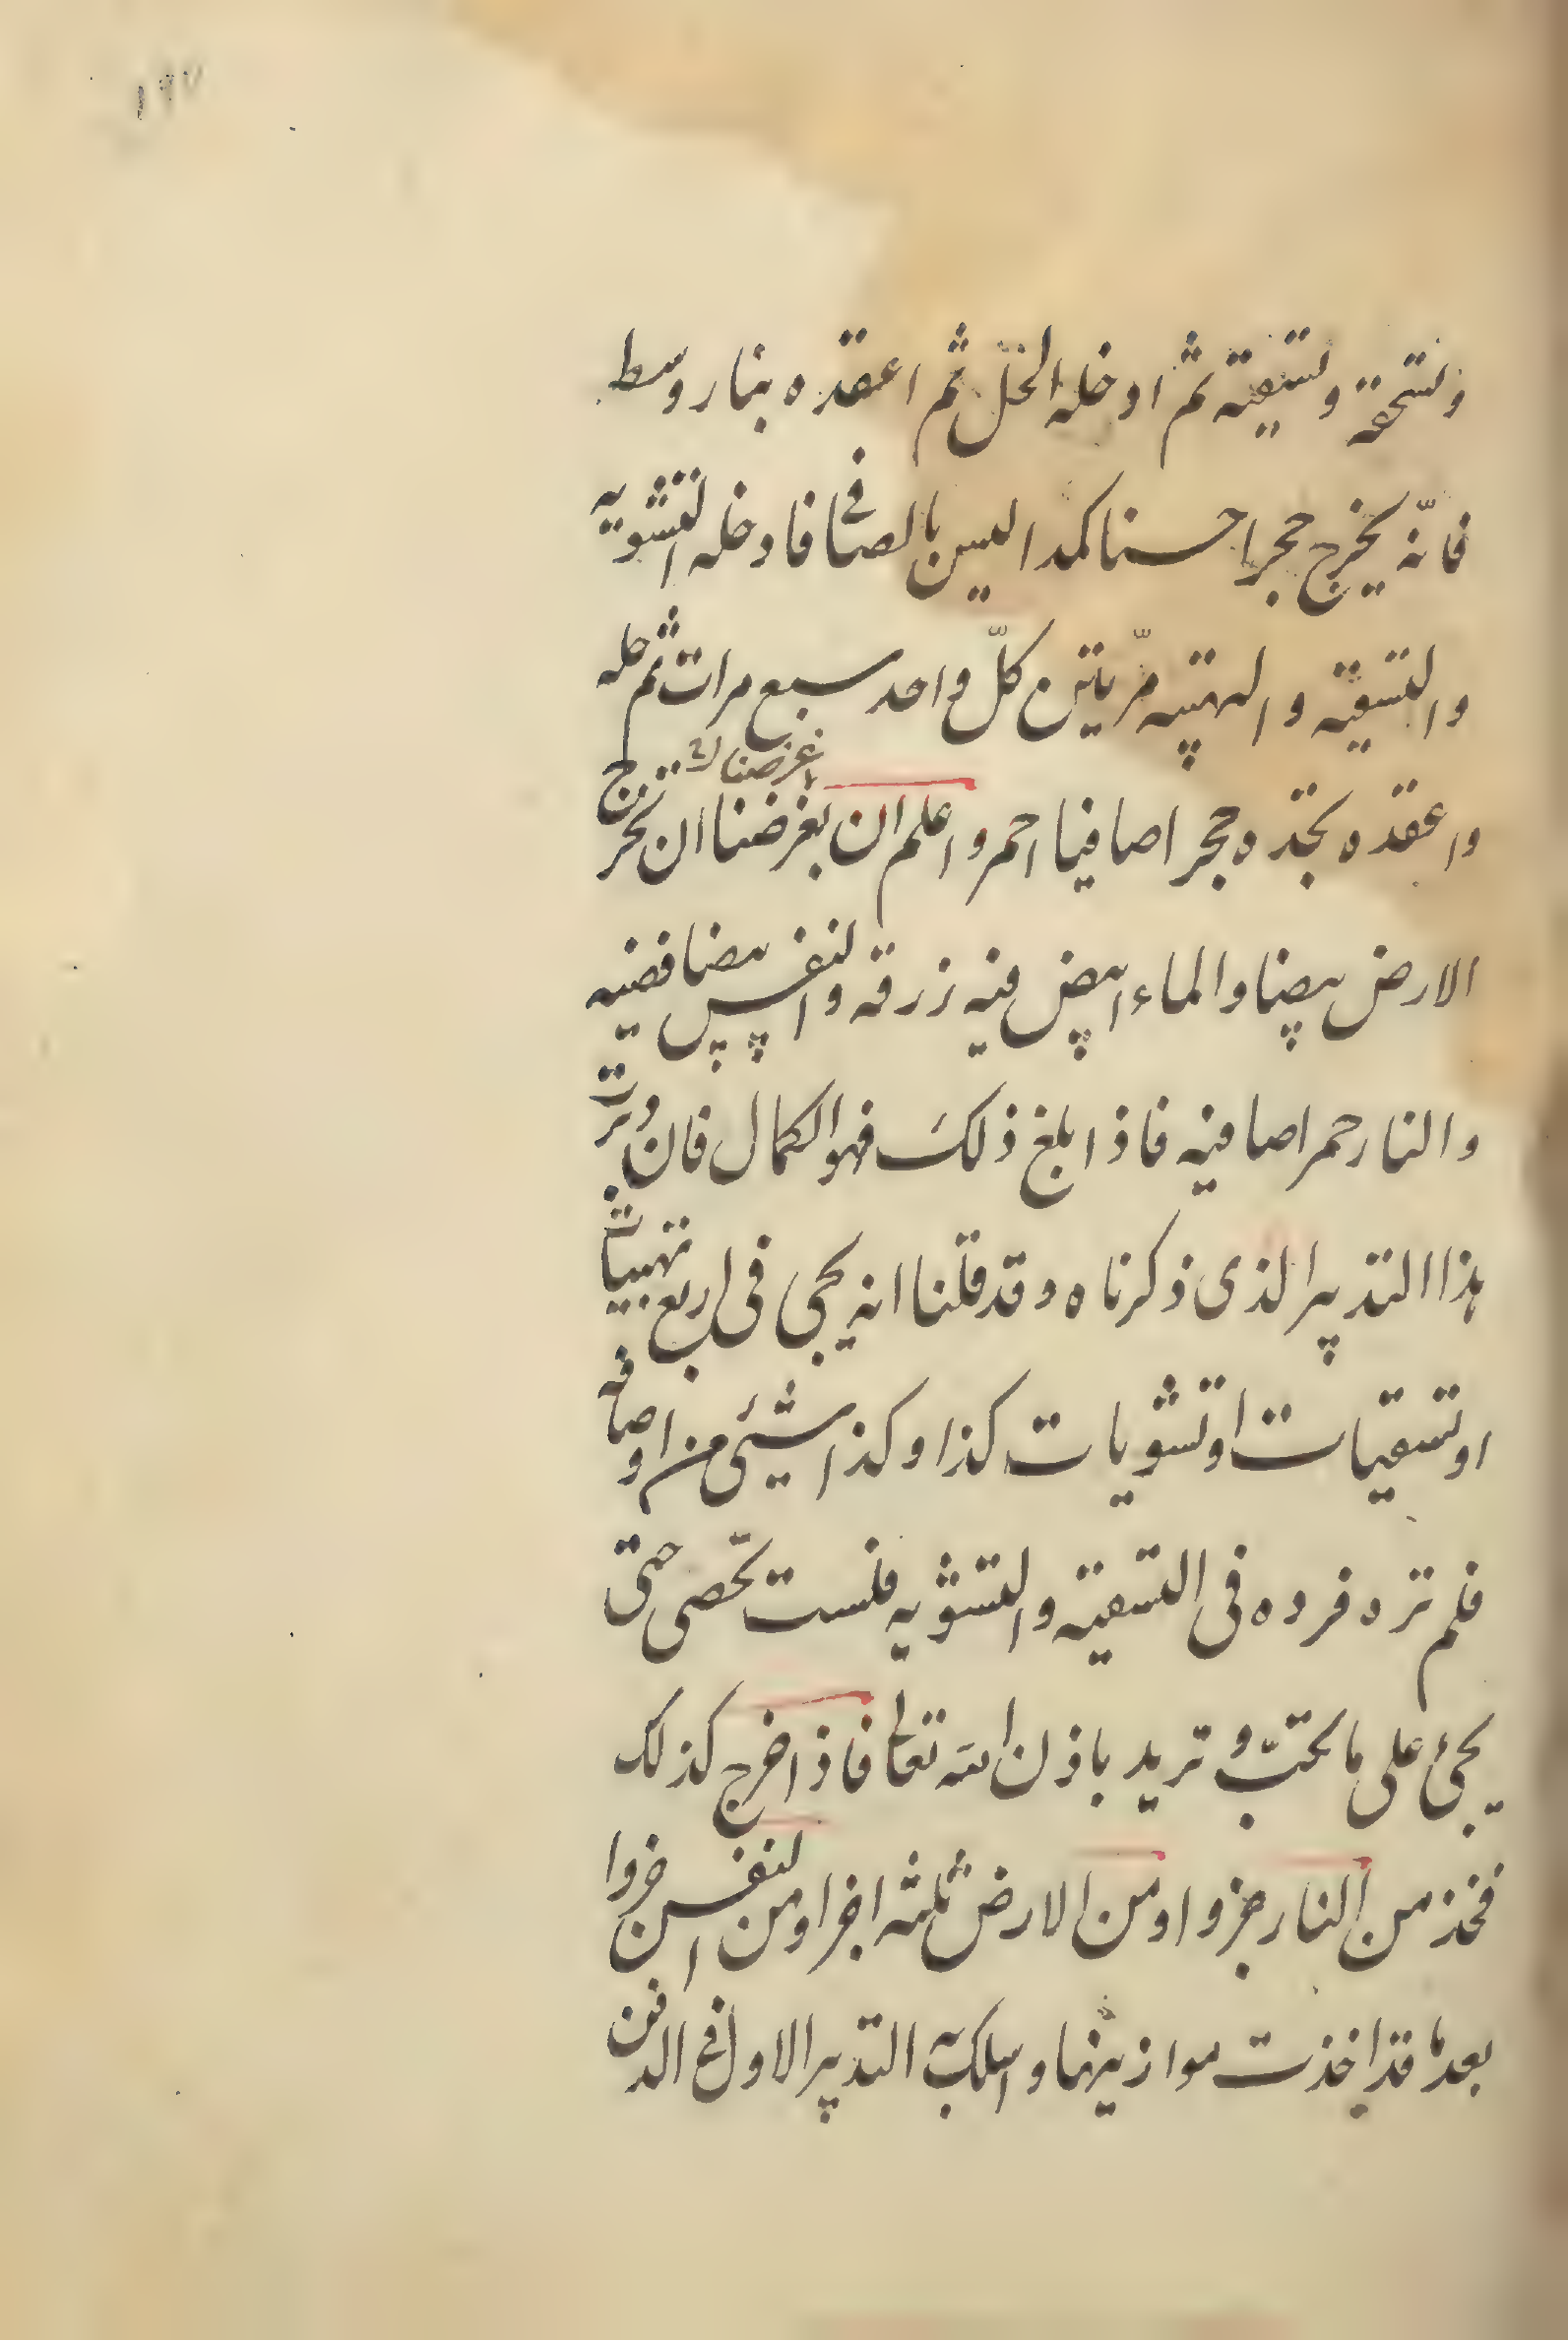 ١٩٧
وتسحقه وتسقيه ثم ادخله الخلّ ثم اعقده بنار وسط
فانّه يخرج حجرا حسنا كمدا ليس بالصافى فادخله التشويه
والتسقيه والتهبيه مرّيتن كلّ واحد سبع مرات ثم حله
واعقده تجده حجرا صافيا احمر واعلم ان بغرضنا ان تخرج
الارض بيضا والماء ابيض فيه زرقه والنفس بيضا فضيه
والنار حمرا صافيه فاذا بلغ ذلك فهو الكمال فان دبرت
هذا التدبير الذى ذكرناه وقد قلنا انه يجى فى اربع تهبيات
او تسقيات او تشويات كذا وكذا شيئى من اوصافه
فلم تره فرده فى التسقيه والتشويه فلست تحصى حتى
يجئ على ما تحبّ وتريد باذن الله تعالى فاذا خرج كذلك
فخذ من النار جزوا ومن الارض ثلثه اجزا ومن النفس جزوا
بعد ما قد اخذت موازينها واسلك به التدبير الاول فى الدفن